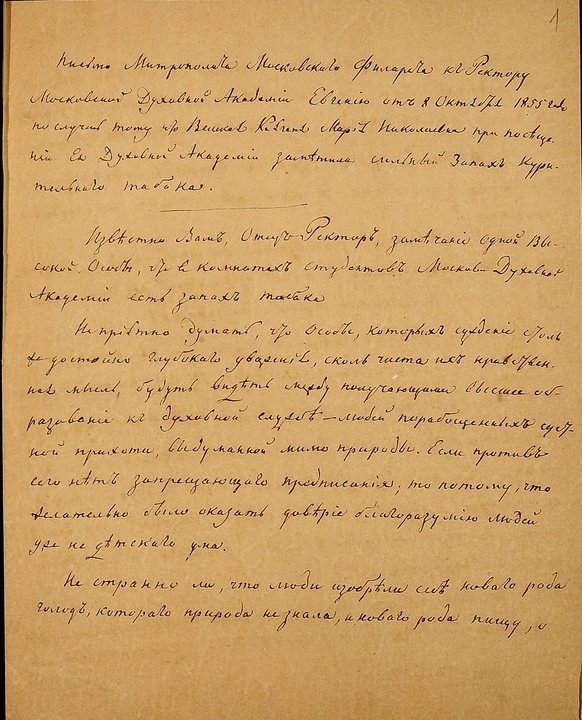 1
Письмо Митрополита Московскаго Филарета къ Ректору
Московской Духовной Академіи Евгенію отъ 8 Октября 1855 года
по случаю тому что Великая Княгиня Марія Николаевна при посѣще-
ніи Ея Духовной Академіи замѣтила сильный запахъ кури-
тельнаго табака.
Извѣстно Вамъ, Отецъ Ректоръ, замѣчаніе одной Вы-
сокой Особы, что въ комнатахъ студентовъ Московской Духовной
Академіи есть запахъ табака
Непріятно думать, что Особы, которыхъ сужденіе столь
же достойно глубокаго уваженія, сколь чиста ихъ нравствен-
ная мысль, будутъ видѣть между получающими высшее об-
разованіе къ духовной службѣ – людей порабощенныхъ сует-
ной прихоти, выдуманной мимо природы. Если противъ
сего нѣтъ запрещающаго предписанія; то потому, что
желательно было оказать довѣріе благоразумію людей
уже не дѣтскаго ума.
Не странно ли, что люди изобрѣли себѣ новаго рода
голодъ, котораго природа не знала, и новаго рода пищу, о